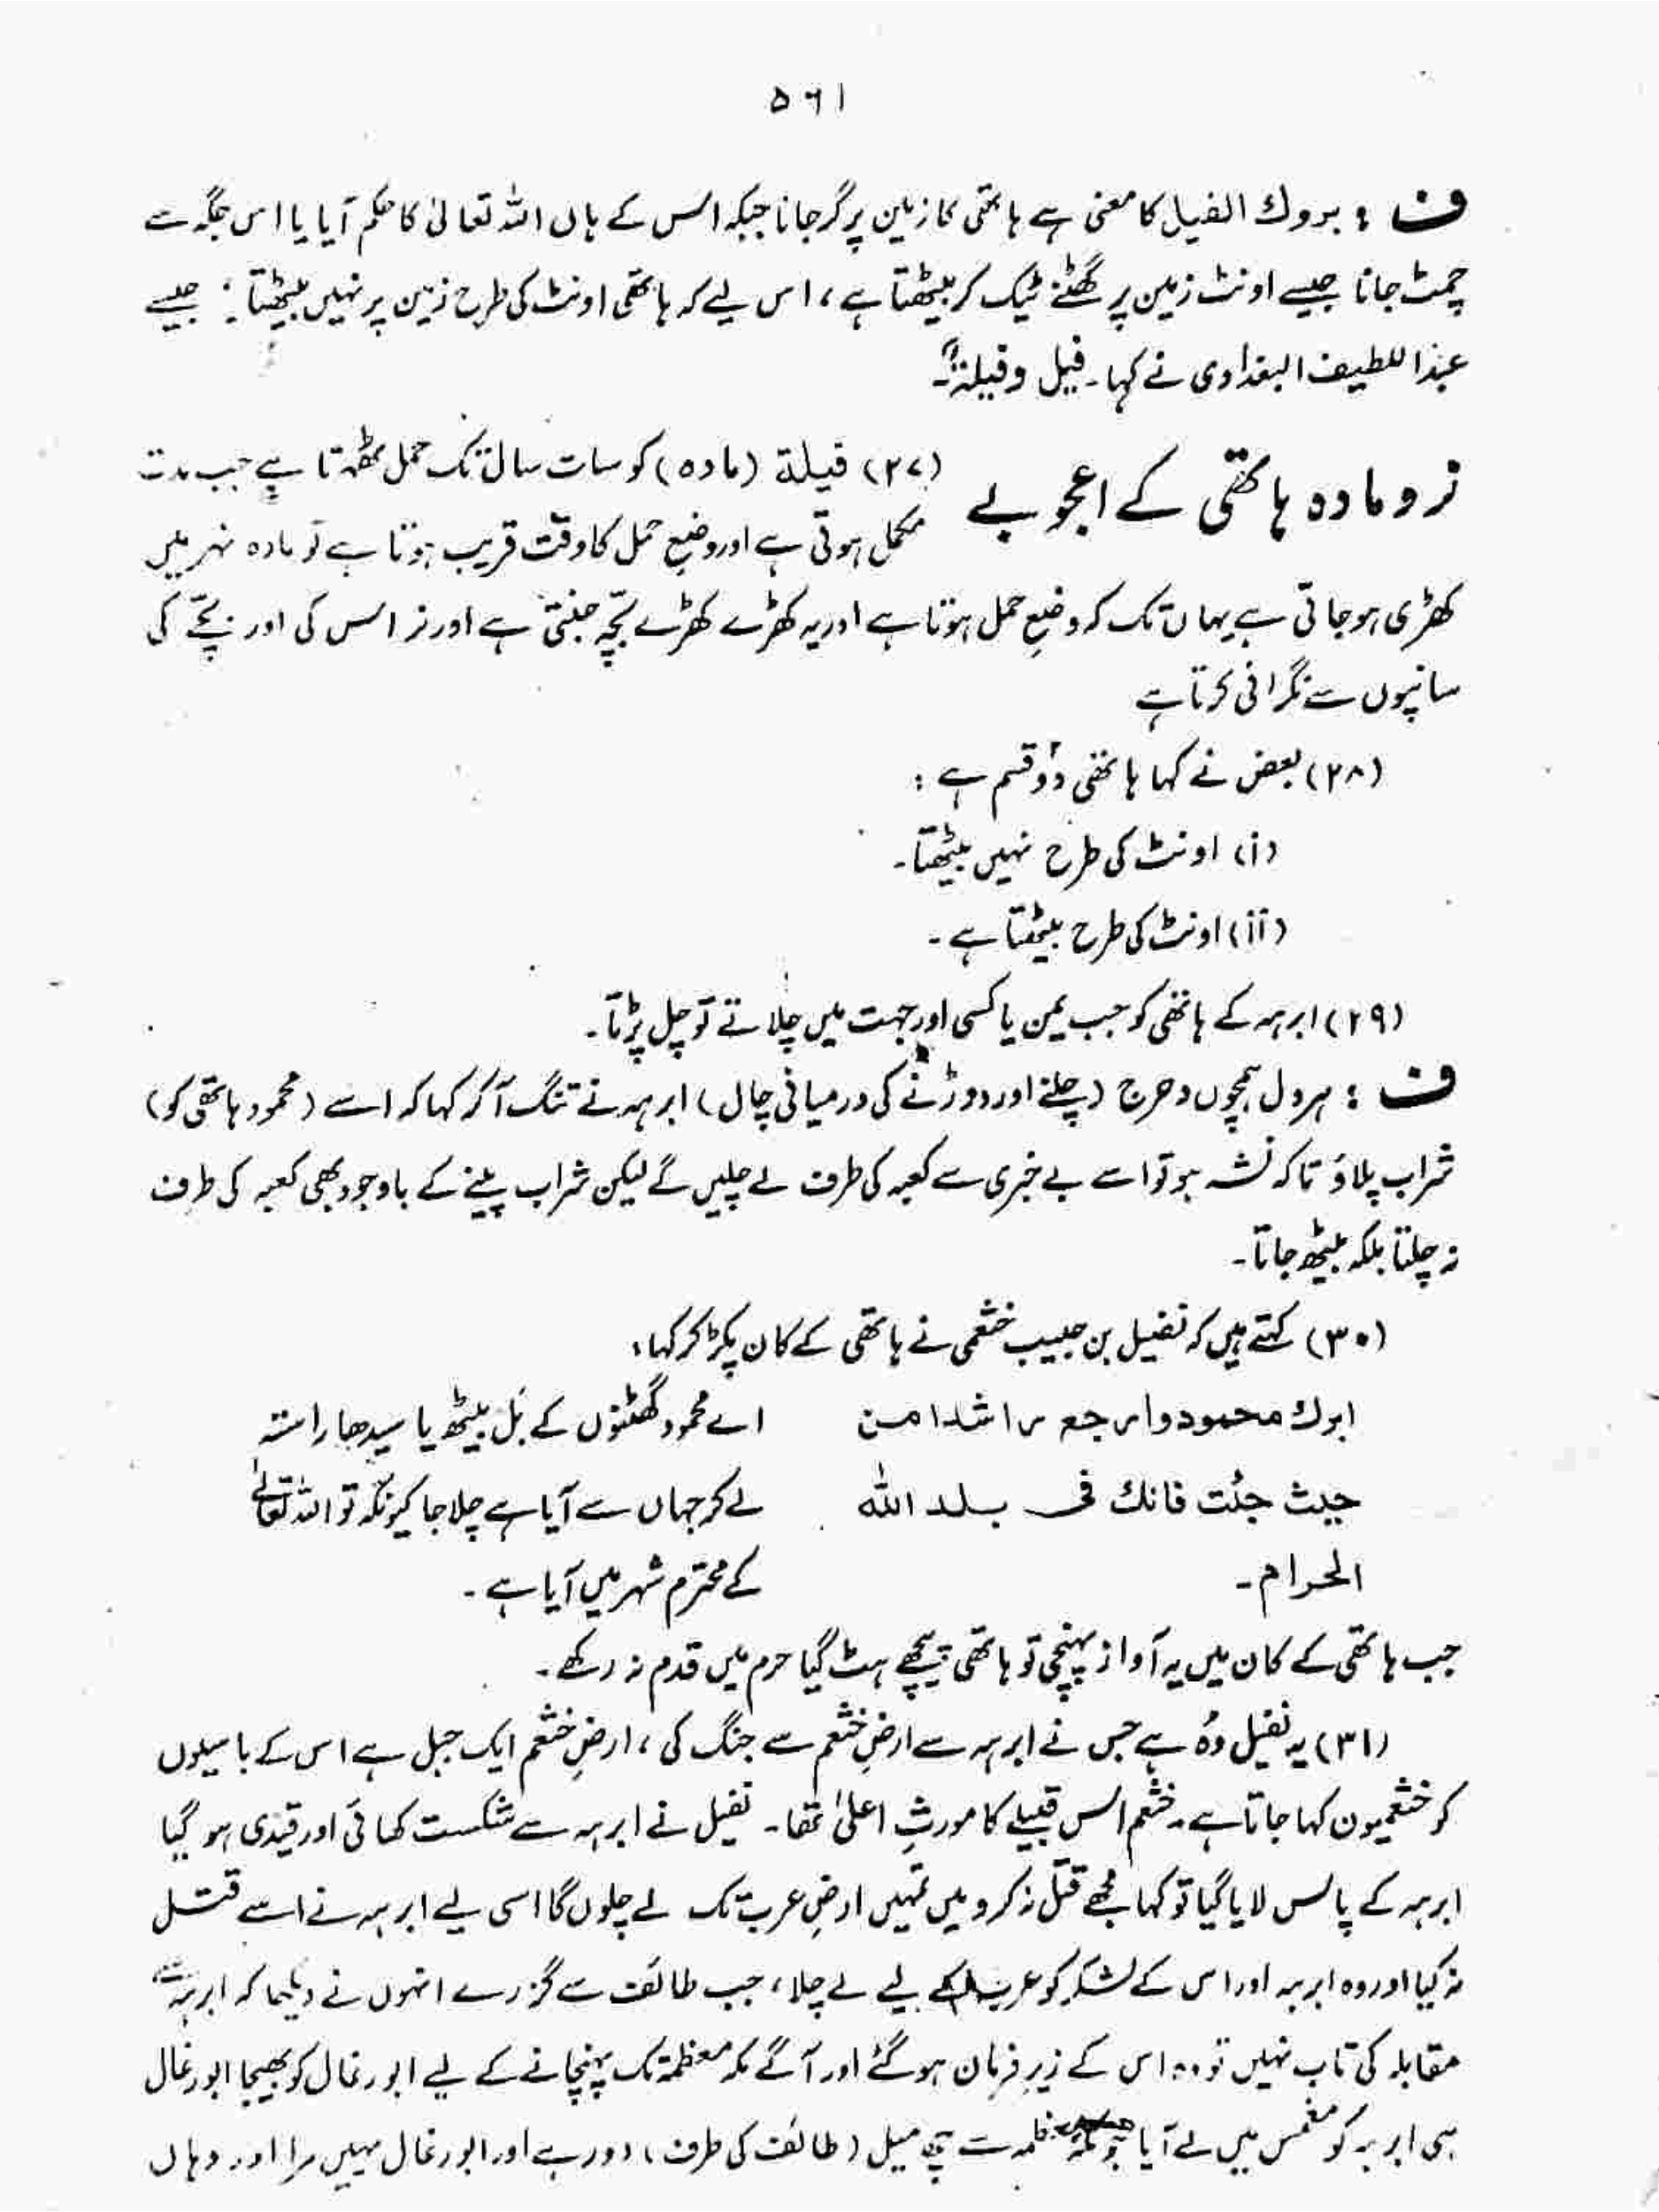 ۵۶۱
ف : بروك الفيل کا معنی ہے ہاتھی کا زمین پر گر جانا جبکہ اس کے ہاں اللہ تعالیٰ کا حکم آیا یا اس جگہ سے
چمٹ جانا جیسے اونٹ زمین پر گھٹنے ٹیک کر بیٹھتا ہے ، اس لیے کہ ہاتھی اونٹ کی طرح زمین پر نہیں بیٹھتا : جیسے
عبداللطیف البغدادی نے کہا ۔ فیل وفیلۃ ۔
نر و مادہ ہاتھی کے اعجوبے
(۲۷) فیلة (مادہ) کو سات سال تک حمل ٹھہرتا ہے جب مدت
مکمل ہوتی ہے اور وضعِ حمل کا وقت قریب ہوتا ہے تو مادہ نہر میں
کھڑی ہو جاتی ہے یہاں تک کہ وضعِ حمل ہوتا ہے اور یہ کھڑے کھڑے بچّہ جنتی ہے اور نر اس کی اور بچّے کی
سانپوں سے نگرانی کرتا ہے
(۲۸) بعض نے کہا ہاتھی دو قسم ہے :
(i) اونٹ کی طرح نہیں بیٹھتا ۔
(ii) اونٹ کی طرح بیٹھتا ہے ۔
(۲۹) ابرہہ کے ہاتھی کو جب یمن یا کسی اور جہت میں چلاتے تو چل پڑتا ۔
ف : ہرول ہمچوں دحرج (چلنے اور دوڑنے کی درمیانی چال) ابرہہ نے تنگ آ کر کہا کہ اسے (محمود ہاتھی کو)
شراب پلاؤ تاکہ نشہ ہو تو اسے بے خبری سے کعبہ کی طرف لے چلیں گے لیکن شراب پینے کے باوجود بھی کعبہ کی طرف
نہ چلتا بلکہ بیٹھ جاتا ۔
(۳۰) کہتے ہیں کہ نفیل بن حبیب خثعمی نے ہاتھی کے کان پکڑ کر کہا :
ابرك محمود وارجع راشدا من
حيث جئت فانك فى بلد الله
الحرام ۔
اے محمود گھٹنوں کے بَل بیٹھ یا سیدھا راستہ
لے کر جہاں سے آیا ہے چلا جا کیونکہ تو اللہ تعالےٰ
کے محترم شہر میں آیا ہے ۔
جب ہاتھی کے کان میں یہ آواز پہنچی تو ہاتھی پیچھے ہٹ گیا حرم میں قدم نہ رکھے ۔
(۳۱) یہ نفیل وُہ ہے جس نے ابرہہ سے ارضِ خثعم سے جنگ کی ، ارضِ خثعم ایک جبل ہے اس کے باسیوں
کو خثعمیون کہا جاتا ہے ۔ خثعم اس قبیلے کا مورثِ اعلیٰ تھا ۔ نفیل نے ابرہہ سے شکست کھائی اور قیدی ہو گیا
ابرہہ کے پاس لایا گیا تو کہا مجھے قتل نہ کرو میں تمہیں ارضِ عرب تک لے چلوں گا اسی لیے ابرہہ نے اسے قتل
نہ کیا اور وہ ابرہہ اور اس کے لشکر کو عرب کے لیے لے چلا ، جب طائف سے گزرے انہوں نے دیکھا کہ ابرہہ سے
مقابلہ کی تاب نہیں تو وہ اس کے زیرِ فرمان ہو گئے اور آگے مکہ معظمہ تک پہنچانے کے لیے ابو رغال کو بھیجا ابو رغال
ہی ابرہہ کو مغمس میں لے آیا جو مکہ معظمہ سے چھ میل (طائف کی طرف) دور ہے اور ابورغال یہیں مرا اور وہاں